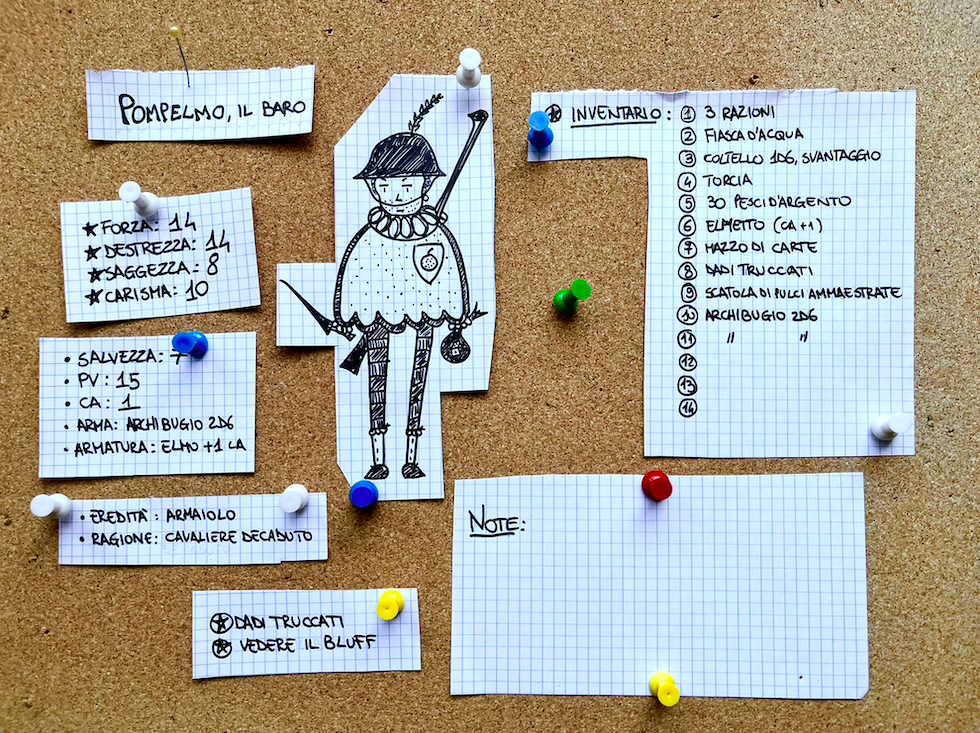 POMPELMO, IL BARO
★ FORZA: 14
★ DESTREZZA: 14
★ SAGGEZZA: 8
★ CARISMA: 10
• SALVEZZA: 7
• PV: 15
• CA: 1
• ARMA: ARCHIBUGIO 2D6
• ARMATURA: ELMO +1 CA
• EREDITÀ: ARMAIOLO
• RAGIONE: CAVALIERE DECADUTO
★ DADI TRUCCATI
★ VEDERE IL BLUFF
★ INVENTARIO: 1 3 RAZIONI
2 FIASCA D'ACQUA
3 COLTELLO 1D6, SVANTAGGIO
4 TORCIA
5 30 PESCI D'ARGENTO
6 ELMETTO (CA+1)
7 MAZZO DI CARTE
8 DADI TRUCCATI
9 SCATOLA DI PULCI AMMAESTRATE
10 ARCHIBUGIO 2D6
11 " "
12
13
14
NOTE: